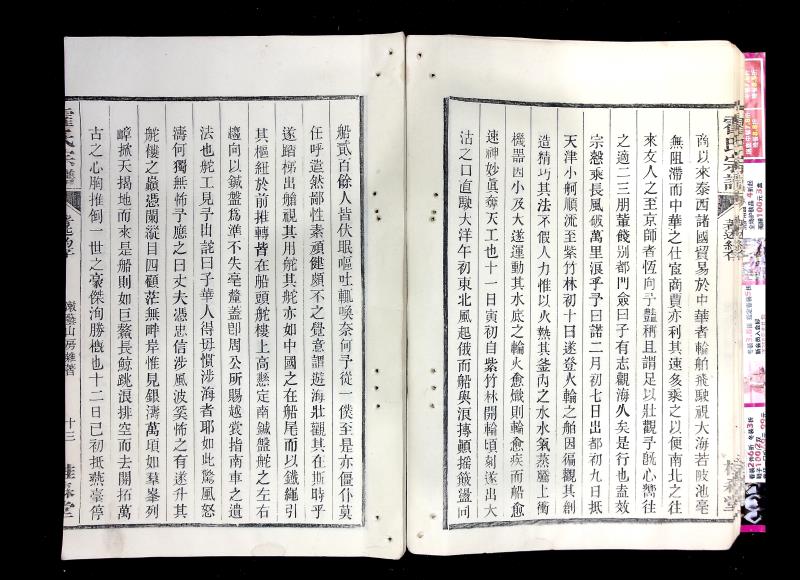 商以來泰西諸國貿易於中華者輪舶飛駛視大海若陂池毫
無阻滯而中華之仕宦商賈亦利其速多乘之以便南北之往
來友人之至京師者恆向予豔稱且謂足以壯觀予旣心嚮往
之適二三朋輩餞別都門僉曰子有志觀海久矣是行也盍效
宗慤乘長風破萬里浪乎予曰諾二月初七日出都初九日抵
天津小舸順流至紫竹林初十日遂登火輪之舶因徧觀其創
造精巧其法不假人力惟以火熱其釜內之水水氣蒸騰上衝
機器因小及大遂運動其水底之輪火愈熾則輪愈疾而船愈
速神妙眞奪天工也十一日寅初自紫竹林開輪頃刻遂出大
沽之口直駛大洋午初東北風起俄而船與浪摶顚搖簸盪同
船貳百餘人皆伏眠嘔吐輒喚奈何予從一僕至是亦僵仆莫
任呼造然鄙性素頑健頗不之覺意謂遊海壯觀其在斯時乎
遂踏梯出艙視其用舵其舵亦如中國之在船尾而以鐵繩引
其樞紐於前推轉皆在船頭舵樓上高懸定南鍼盤舵之左右
趨向以鍼盤爲準不失毫釐蓋卽周公所賜越裳指南車之遺
法也舵工見予出詫曰子華人得毋慣涉海者耶如此驚風怒
濤何獨無怖予應之曰丈夫憑忠信涉風波奚怖之有遂升其
舵樓之巔憑闌縱目四顧茫無畔岸惟見銀濤萬項如羣峯列
嶂掀天揭地而來是船則如巨鰲長鯨跳浪排空而去開拓萬
古之心胸推倒一世之豪傑洵勝概也十二日已初抵燕臺停
霍氏宗譜
十三
桂森堂